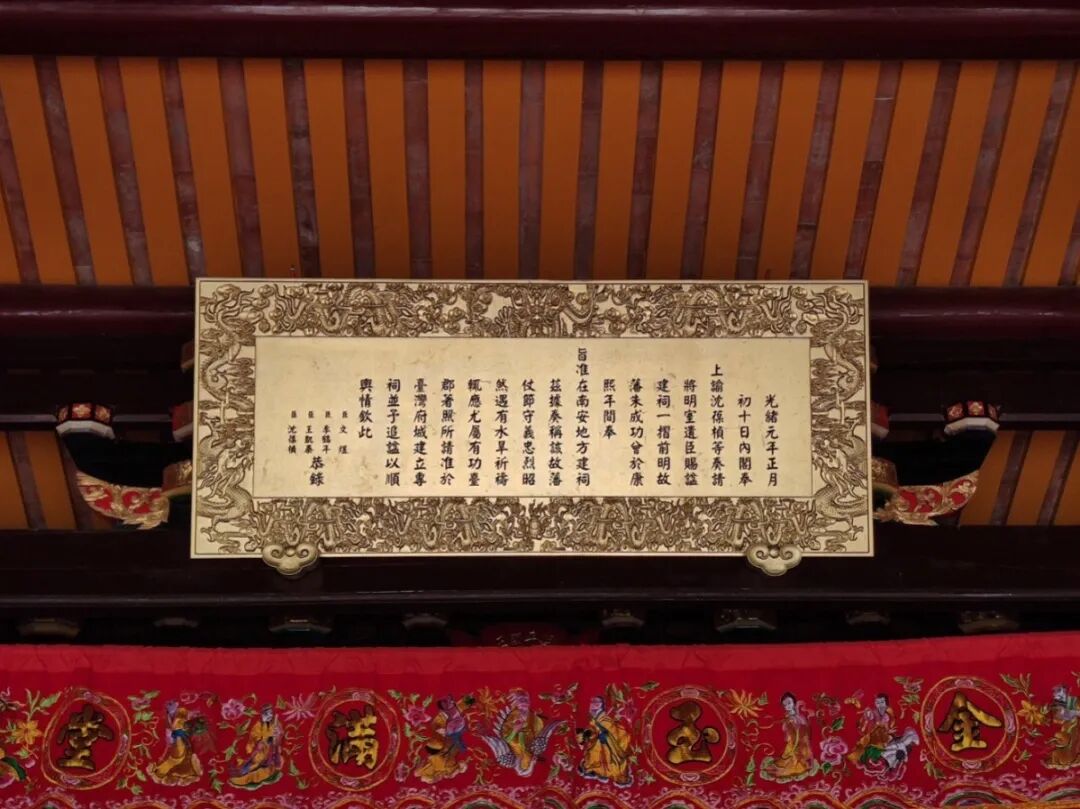 光緒元年正月
初十日內閣奉
上諭沈葆楨等奏請
將明室遺臣賜諡
建祠一摺前明故
藩朱成功曾於康
熙年間奉
旨准在南安地方建祠
茲據奏稱該故藩
仗節守義忠烈昭
然遇有水旱祈禱
輒應尤屬有功臺
郡著照所請准於
臺灣府城建立專
祠並予追諡以順
輿情欽此
臣文煜
臣李鶴年
臣王凱泰
臣沈葆楨
恭錄
金玉滿堂